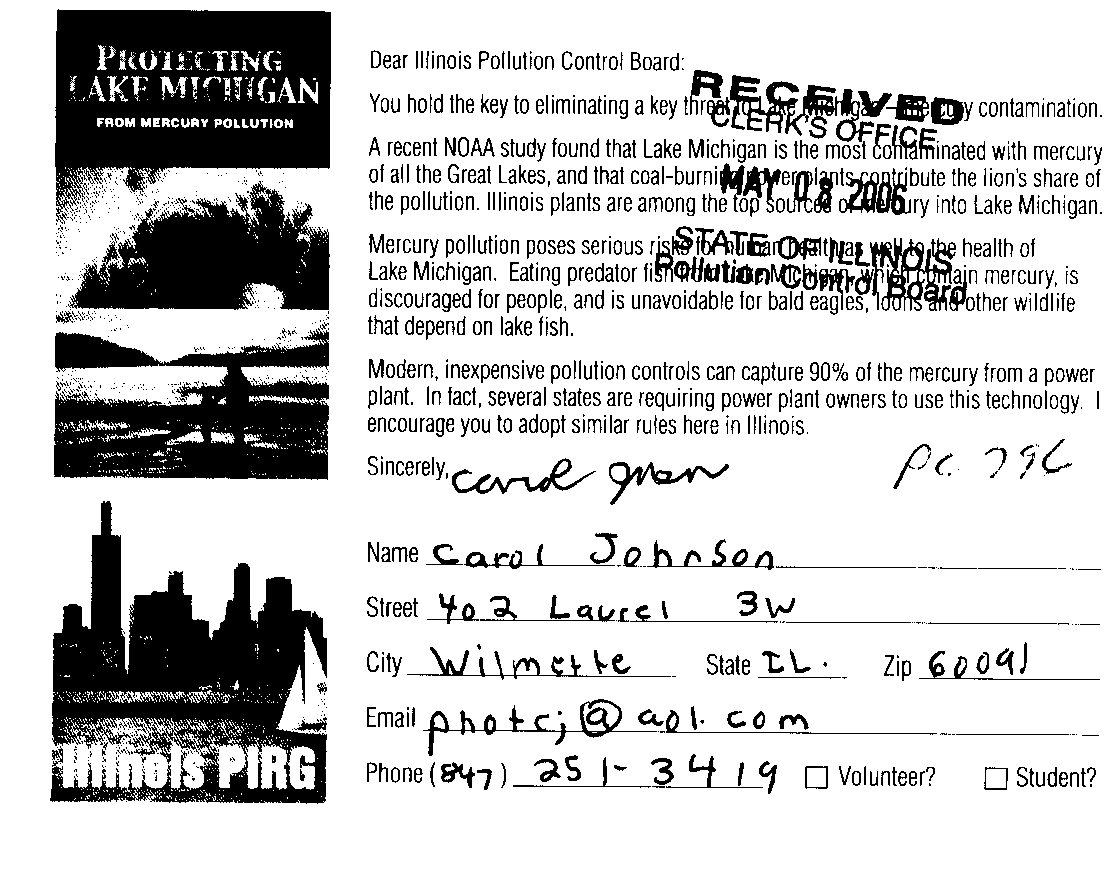 PROTECTING
LAKE MICHIGAN
FROM MERCURY POLLUTION
Illinois PIRG
Dear Illinois Pollution Control Board:
You hold the key to eliminating a key threat to Lake Michigan—mercury contamination.
A recent NOAA study found that Lake Michigan is the most contaminated with mercury
of all the Great Lakes, and that coal-burning powerplants contribute the lion's share of
the pollution. Illinois plants are among the top sources of mercury into Lake Michigan.
Mercury pollution poses serious risks for human health as well to the health of
Lake Michigan. Eating predator fish from Lake Michigan, which contain mercury, is
discouraged for people, and is unavoidable for bald eagles, loons and other wildlife
that depend on lake fish.
Modern, inexpensive pollution controls can capture 90% of the mercury from a power
plant. In fact, several states are requiring power plant owners to use this technology. I
encourage you to adopt similar rules here in Illinois.
RECEIVED
CLERK'S OFFICE
MAY 08 2006
STATE OF ILLINOIS
Pollution Control Board
Sincerely, Carol
Name Carol Johnson
Street 402 Laurel 3W
City Wilmette State IL. Zip 60091
Email photcj@aol.com
Phone (847) 251-3419 Volunteer? Student?